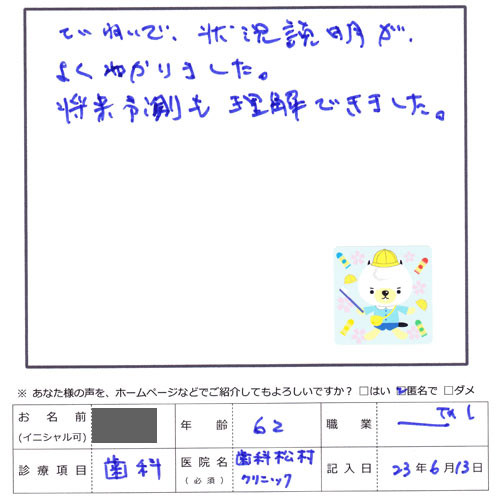 ていねいで、状況説明が、
よくわかりました。
将来予測も理解できました。
※ あなた様の声を、ホームページなどでご紹介してもよろしいですか？ □はい ☑匿名で □ダメ
お名前 (イニシャル可) 年齢 62 職業 なし
診療項目 歯科 医院名 (必須) 歯科松村クリニック 記入日 23年6月13日